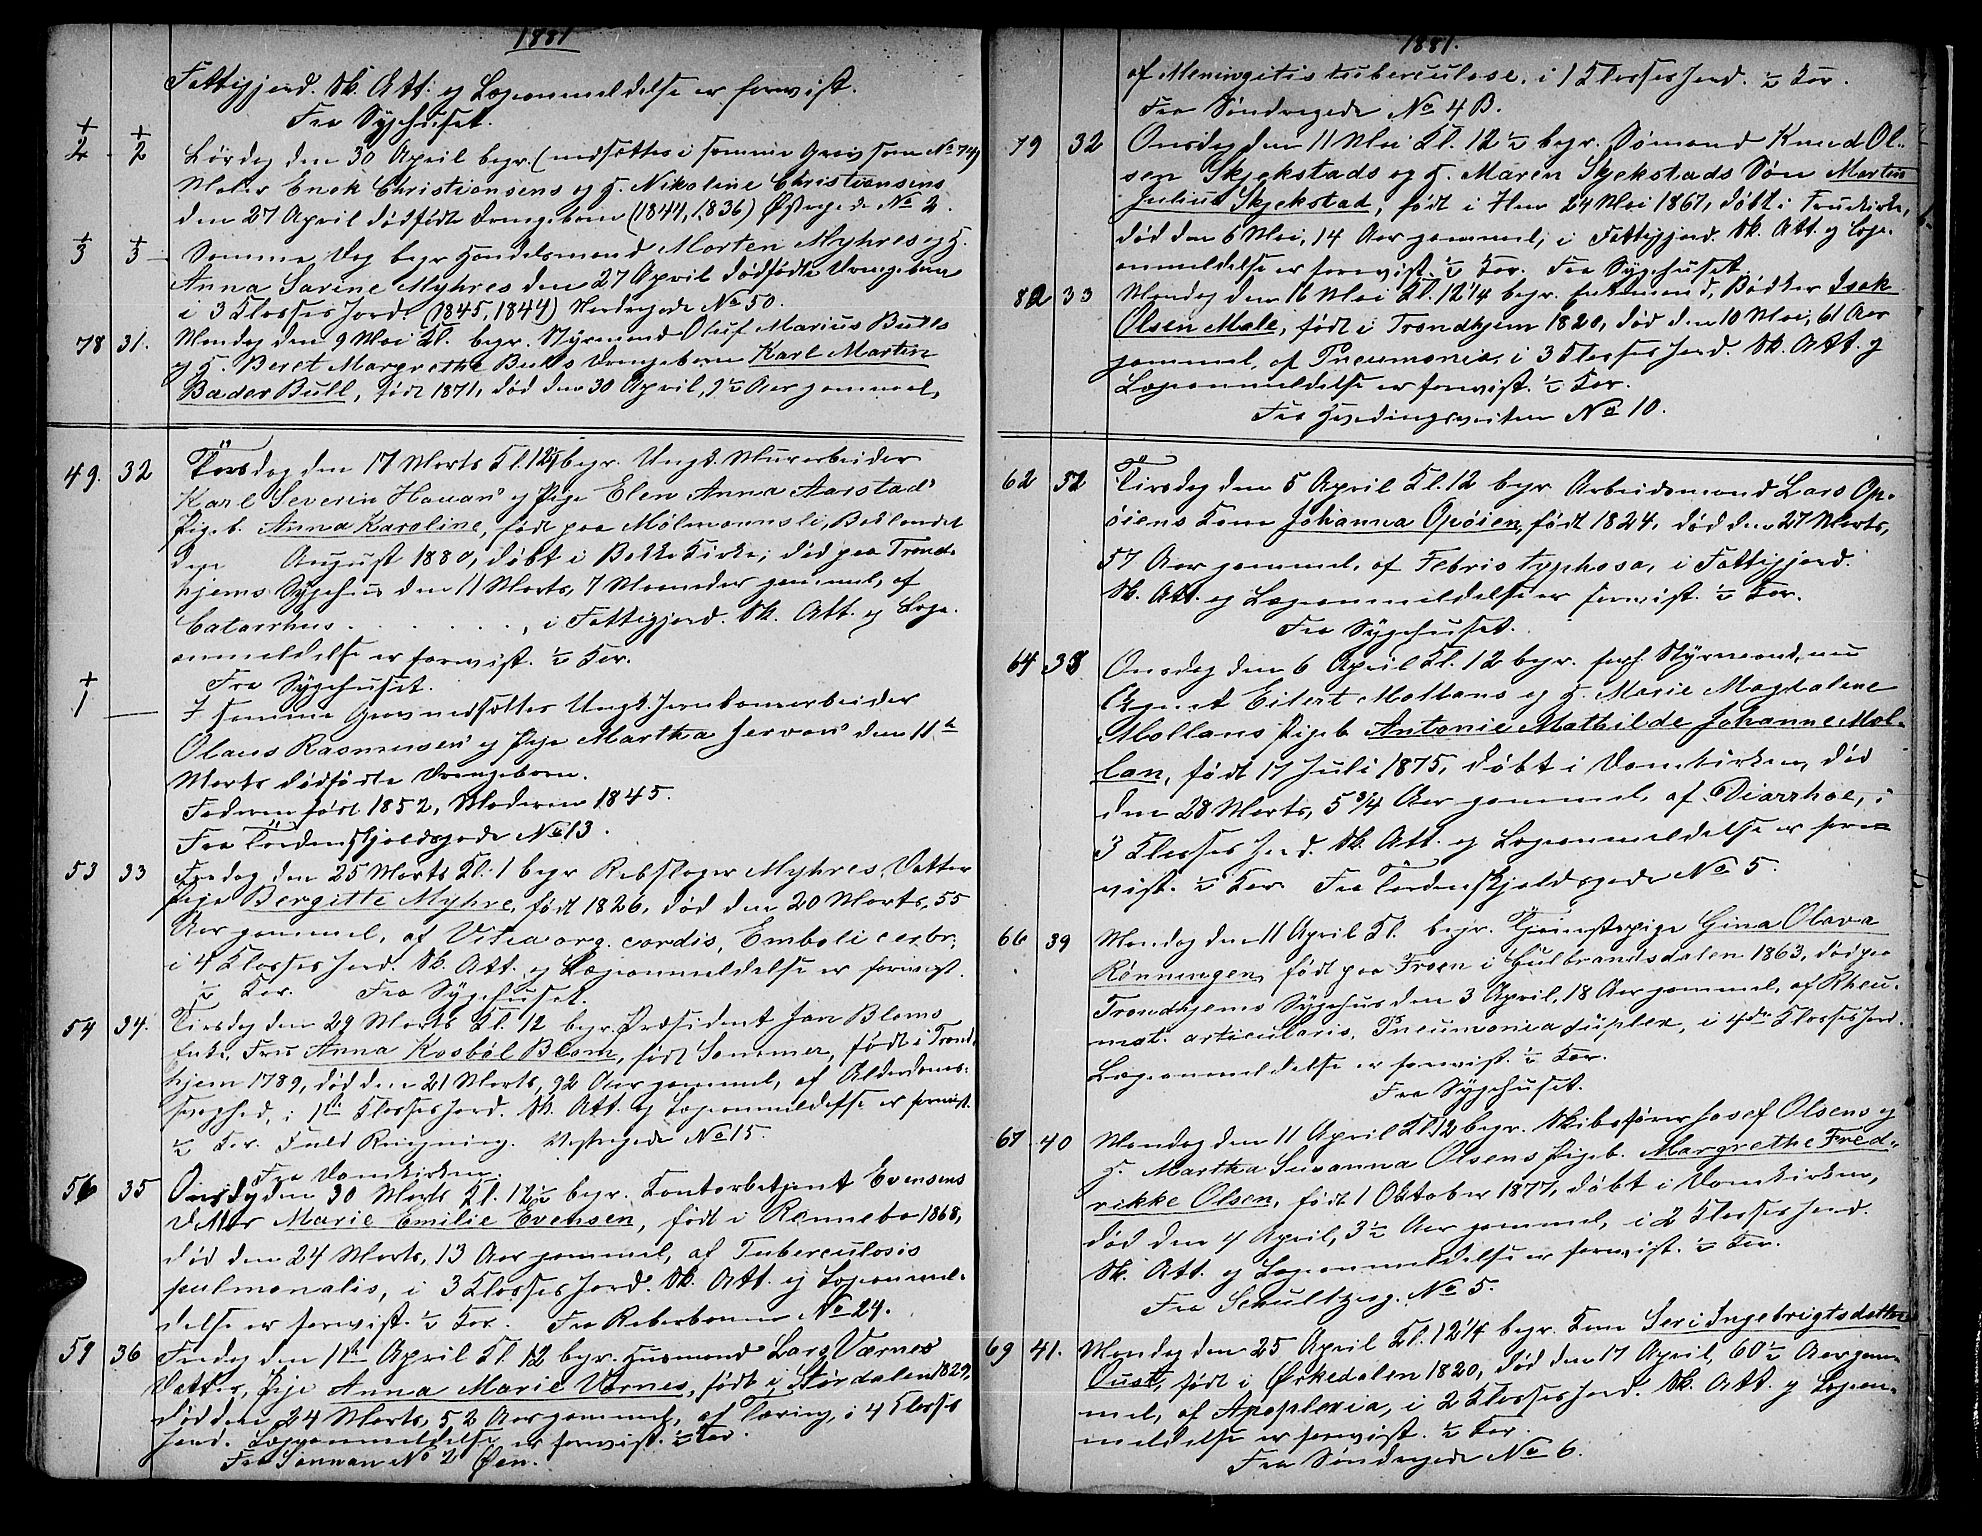 1881
Fattigjord. Sk. Att. og Lægeanmeldelse er forevist.
Fra Sygehuset.
+/2 +/2 Lørdag den 30 April begr. (nedsættes i samme Grav som No 74)
Maler Enok Christiansens og H. Nikoline Christiansens
den 27 April dødfødt Drengebarn (1844, 1836) Østregade No 2.
+/3 +/3 Samme Dag begr Handelsmand Morten Myhres og H.
Anna Sarine Myhres den 27 April dødfødte Drengebarn
i 3 Klasses Jord. (1845, 1844) Nordregade No 50.
78 31. Mandag den 9 Mai Kl. begr. Styrmand Oluf Marius Bulls
og H. Beret Margrethe Bulls Drengebarn Karl Martin
Bader Bull, født 1871, død den 30 April, 9½ Aar gammel,
49. 32 Torsdag den 17 Marts Kl. 12¼ begr. Ungk. Murarbeider
Karl Severin Hauans og Pige Elen Anna Aarstads
Pigeb. Anna Karoline, født paa Mølmannsli, Baklandet
den August 1880, døbt i Bakke Kirke, død paa Trond-
hjems Sygehus den 11 Marts, 7 Maaneder gammel, af
Catarrhus . . . . . . , i Fattigjord. Sk. Att. og Læge-
anmeldelse er forevist. ½ Kor.
Fra Sygehuset.
+/1 I samme Grav nedsættes Ungk. Jernbanearbeider
Olaus Rasmussens og Pige Martha Jervans den 11te
Marts dødfødte Drengebarn.
Faderen født 1852, Moderen 1845.
Fra Tordenskjoldsgade No 13.
53 33 Fredag den 25 Marts Kl. 1 begr Rebslager Myhres Datter
Pige Bergitte Myhre, født 1826, død den 20 Marts, 55
Aar gammel, af Vitia org. cordis, Emboli cerbr.
i 4 Klasses Jord. Sk. Att. og Lægeanmeldelse er forevist.
½ Kor. Fra Sygehuset.
54 34. Tirsdag den 29 Marts Kl. 12 begr. Præsident Jan Bloms
Enke, Fru Anna Kosbøl Blom, født Sommer, født i Trond-
hjem 1789, død den 21 Marts, 92 Aar gammel, af Alderdoms-
svaghed, i 1ste Klasses Jord. Sk. Att. og Lægeanmeldelse er forevist.
½ Kor. Fuld Ringning. Vestregade No 15.
Fra Domkirken.
56 35 Onsdag den 30 Marts Kl. 12½ begr. Kontorbetjent Evensens
Datter Marie Emilie Evensen, født i Rennebo 1868,
død den 24 Marts, 13 Aar gammel, af Tuberculosis
pulmonalis, i 3 Klasses Jord. Sk. Att. og Lægeanmel-
delse er forevist. ½ Kor. Fra Reberbanen No 24.
59 36 Fredag den 1ste April Kl. 12 begr. Husmand Lars Værnes
Datter, Pige Anna Marie Vernes, født i Størdalen 1829,
død den 24 Marts, 52 Aar gammel, af Tæring, i 4 Klasses
Jord. Lægeanmeldelse er forevist. ½ Kor.
Fra Sannan No 2 Øen.
1881.
af Meningitis tuberculose, i 1 Klasses Jord. ½ Kor.
Fra Søndregade No 4 B.
79 32 Onsdag den 11 Mai Kl. 12½ begr. Sømand Knud Ol-
sen Skjekstads og H. Maren Skjekstads Søn Martin
Julius Skjekstad, født i Hlm 24 Mai 1867, døbt i Fruekirke,
død den 6 Mai, 14 Aar gammel, i Fattigjord. Sk. Att. og Læge-
anmeldelse er forevist. ½ Kor. Fra Sygehuset.
82 33 Mandag den 16 Mai Kl. 12¼ begr. Enkemand, Bødker Isak
Olsen Male, født i Trondhjem 1820, død den 10 Mai, 61 Aar
gammel, af Pneumonia, i 3 Klasses Jord. Sk. Att. og
Lægeanmeldelse er forevist. ½ Kor.
Fra Hvedingsveiten No 10.
62 52 Tirsdag den 5 April Kl. 12 begr Arbeidsmand Lars Op-
øiens Kone Johanna Opøien, født 1824, død den 27 Marts,
57 Aar gammel, af Febris typhosa, i Fattigjord.
Sk. Att. og Lægeanmeldelse er forevist. ½ Kor.
Fra Sygehuset.
64 38 Onsdag den 6 April Kl. 12 begr. forh. Styrmand, nu
Agent Eilert Mollans og H. Marie Magdalene
Mollans Pigeb Antonie Mathilde Johanne Mol-
lan, født 17 Juli 1875, døbt i Domkirken, død
den 28 Marts, 5¾ Aar gammel, af Diarrhoe, i
3 Klasses Jord. Sk. Att. og Lægeanmeldelse er fore-
vist. ½ Kor. Fra Tordenskjoldsgade No 5.
66 39 Mandag den 11 April Kl. begr. Tjenestepige Gina Olava
Rønningen, født paa Froen i Gulbrandsdalen 1863, død paa
Trondhjems Sygehus den 3 April, 18 Aar gammel, af Rheu-
mat. articularis, Pneumonia duplex, i 4de Klasses Jord.
Lægeanmeldelse er forevist. ½ Kor.
Fra Sygehuset.
67 40 Mandag den 11 April Kl. 12 begr. Skibsfører Josef Olsens og
H. Martha Susanna Olsens Pigeb. Margrethe Fred-
rikke Olsen, født 1 Oktober 1877, døbt i Domkirken,
død den 4 April, 3½ Aar gammel, i 2 Klasses Jord.
Sk. Att. og Lægeanmeldelse er forevist. ½ Kor.
Fra Schultzesg. No 5.
69 41. Mandag den 25 April Kl. 12¼ begr. Kone Seri Ingebrigtsdatter
Oust, født i Ørkedalen 1820, død den 17 April, 60½ Aar gam-
mel, af Apoplexia, i 2 Klasses Jord. Sk. Att. og Lægean-
meldelse er forevist. ½ Kor.
Fra Søndregade No 6.